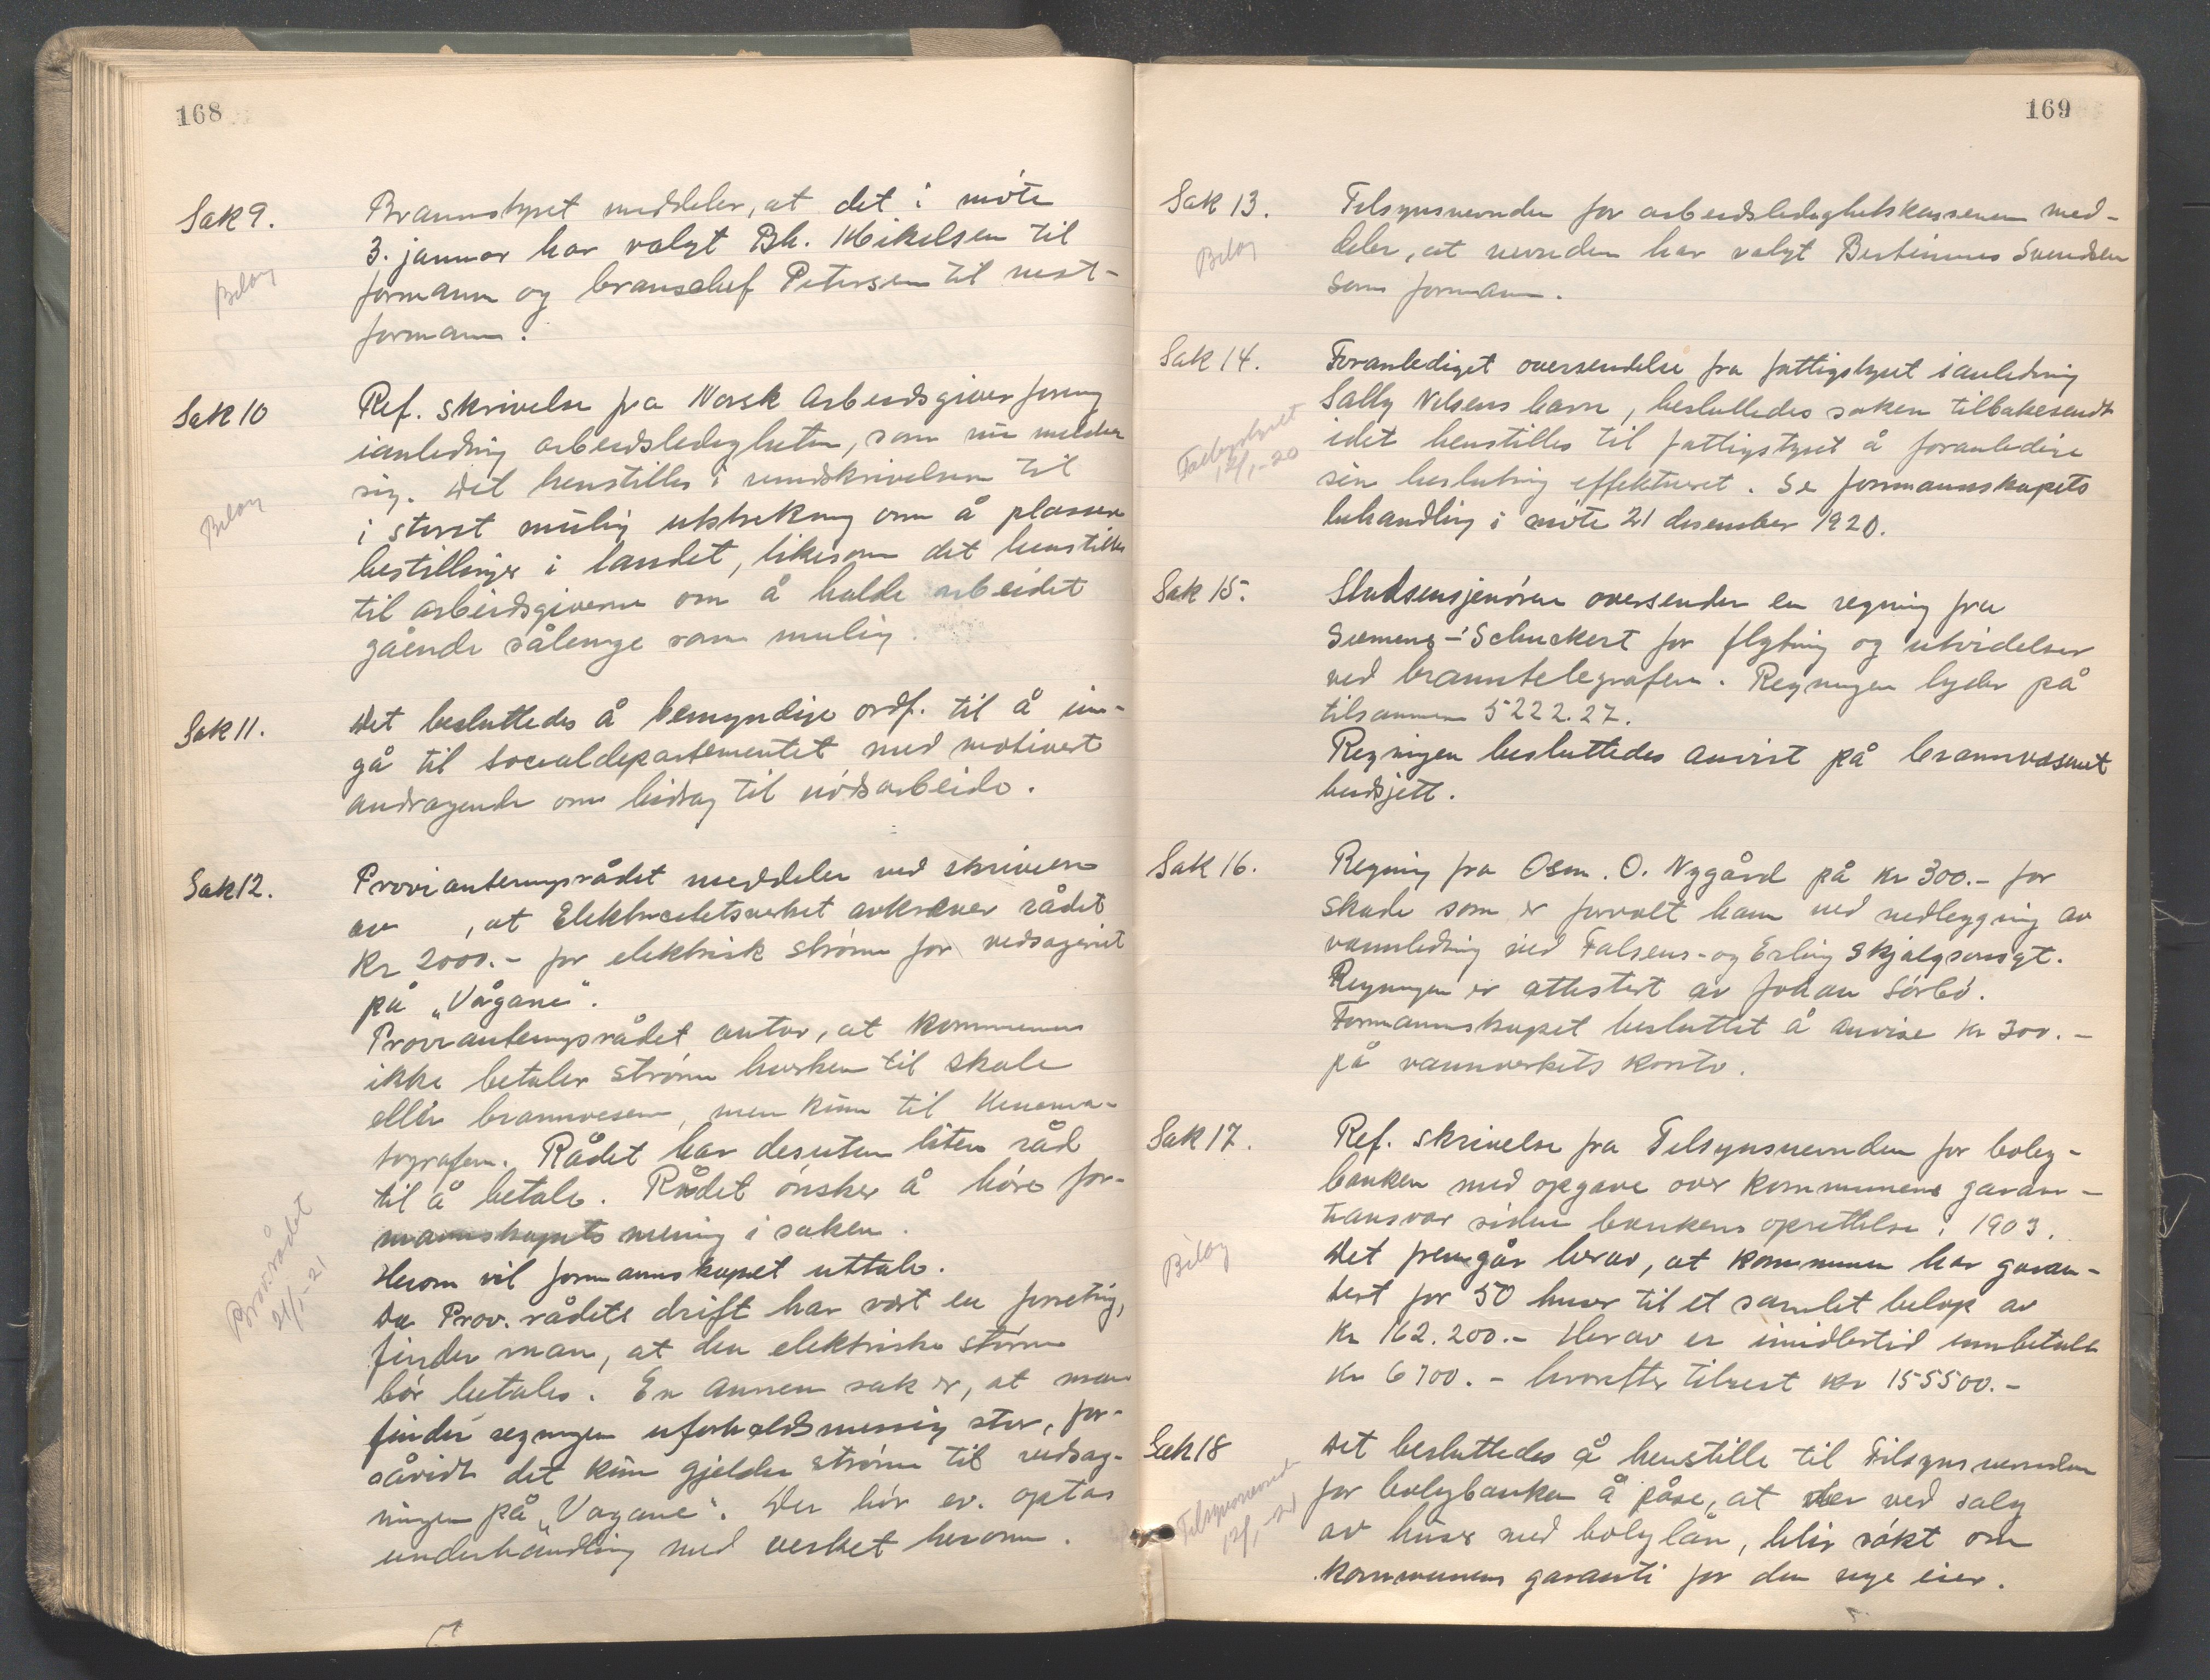 168
Sak 9.
Brannstyret meddeler, at det i møte
3. januar har valgt Bh. Mikelsen til
formann og branschef Petersen til nest-
formann.
Bilag
Sak 10
Ref. skrivelse fra Norsk Arbeidsgiverforening
ianledning arbeidsledigheten, som nu melder
sig. Det henstilles i rundskrivelsen til
i størst mulig utstrekning om å plassere
bestillinger i landet, likesom det henstilles
til arbeidsgiverne om å holde arbeidet
gående sålenge som mulig.
Bilag
Sak 11.
Det besluttedes å bemyndige ordf. til å inn-
gå til socialdepartementet med motivert
andragende om bidrag til nødsarbeide.
Sak 12.
Provianteringsrådet meddeler ved skrivelse
av , at Elektrisitetsverket avkrever rådet
Kr 2000.- for elektrisk strøm for vedsageriet
på „Vågane".
Provianteringsrådet antar, at kommunen
ikke betaler strøm hverken til skole
eller brannvesen, men kun til kinema-
tografen. Rådet har desuten liten råd
til å betale. Rådet ønsker å høre for-
mannskapets mening i saken.
Herom vil formannskapet uttale.
Da Prov. rådets drift har vært en forretning,
finder man, at den elektriske strøm
bør betales. En annen sak er, at man
finder regningen uforholdsmessig stor, for-
såvidt det kun gjelder strøm til vedsag-
ningen på „Vagane". Der bør ev. optas
underhandling med verket herom.
Prov.rådet
21/1-21
169
Sak 13.
Tilsynsnevnden for arbeidsledighetskassenen med-
deler, at nevnden har valgt Bertinius Svendsen
som formann.
Bilag
Sak 14.
Foranlediget oversendelse fra fattigstyret ianledning
Sally Nilsens barn, besluttedes saken tilbakesendt
idet henstilles til fattigstyret å foranledige
sin beslutning effektueret. Se formannskapets
behandling i møte 21 desember 1920.
Fattigstyret
12/1-20
Sak 15.
Stadsensjenøren oversender en regning fra
Siemens-Schuckert for flytning og utvidelser
ved branntelegrafen. Regningen lyder på
tilsammen 5222.27.
Regningen besluttedes anvist på brannvesenet
budsjett.
Sak 16.
Regning fra Osm. O. Nygård på kr 300.- for
skade som er forvolt ham ved nedlegging av
vannledning ved Falsens- og Erling Skjalgsonsgt.
Regningen er attestert av Johan Sørbø.
Formannskapet besluttet å anvise kr 300.-
på vannverkets konto.
Sak 17.
Ref. skrivelse fra Tilsynsnevnden for bolig-
banken med opgave over kommunens garan-
tiansvar siden bankens oprettelse i 1903.
Det fremgår herav, at kommunen har garan-
tert for 50 huser til et samlet beløp av
Kr 162.200.- Herav er imidlertid innbetalt
Kr 6700.- hvorefter tilrest kr 155500.-
Bilag
Sak 18
Det besluttedes å henstille til Tilsynsnevnden
for boligbanken å påse, at der ved salg
av huser med boliglån, blir søkt om
kommunens garanti for den nye eier.
Tilsynsnevnden
12/1-21